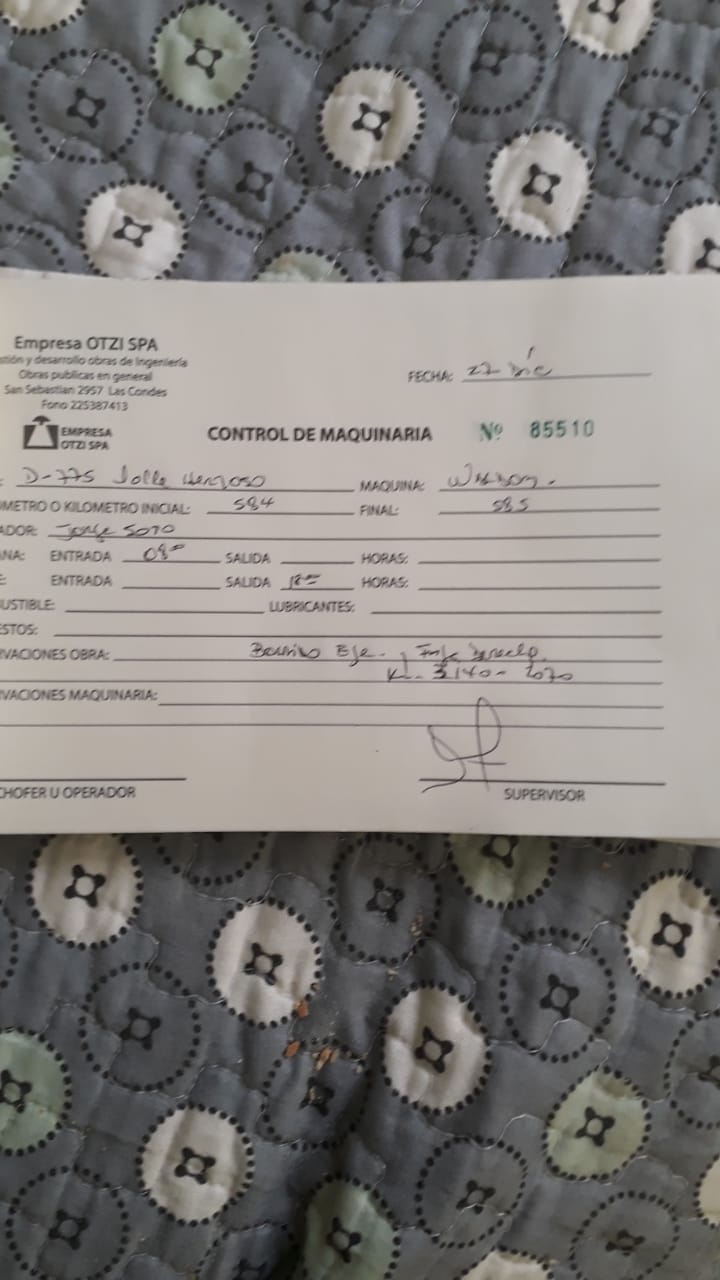 Empresa OTZI SPA
stión y desarrollo obras de Ingeniería
Obras publicas en general
San Sebastian 2957 Las Condes
Fono 225387413
FECHA: 27 Dic
EMPRESA
OTZI SPA
CONTROL DE MAQUINARIA Nº 85510
: D-775 MAQUINA:
OMETRO O KILOMETRO INICIAL: 584 FINAL: 585
ADOR: Jorge Soto
ANA: ENTRADA 08⁰⁰ SALIDA HORAS:
E: ENTRADA SALIDA 18⁰⁰ HORAS:
USTIBLE: LUBRICANTES:
STOS:
RVACIONES OBRA: Barrido Eje
3140 - 2070
RVACIONES MAQUINARIA:
CHOFER U OPERADOR SUPERVISOR